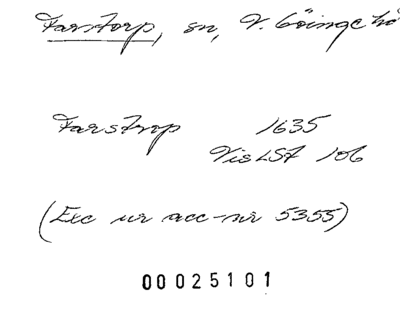 Farstorp, sn, V. Göinge hd
Farstrop 1635
VisLSA 106
(Exc ur acc-nr 5355)
00025101